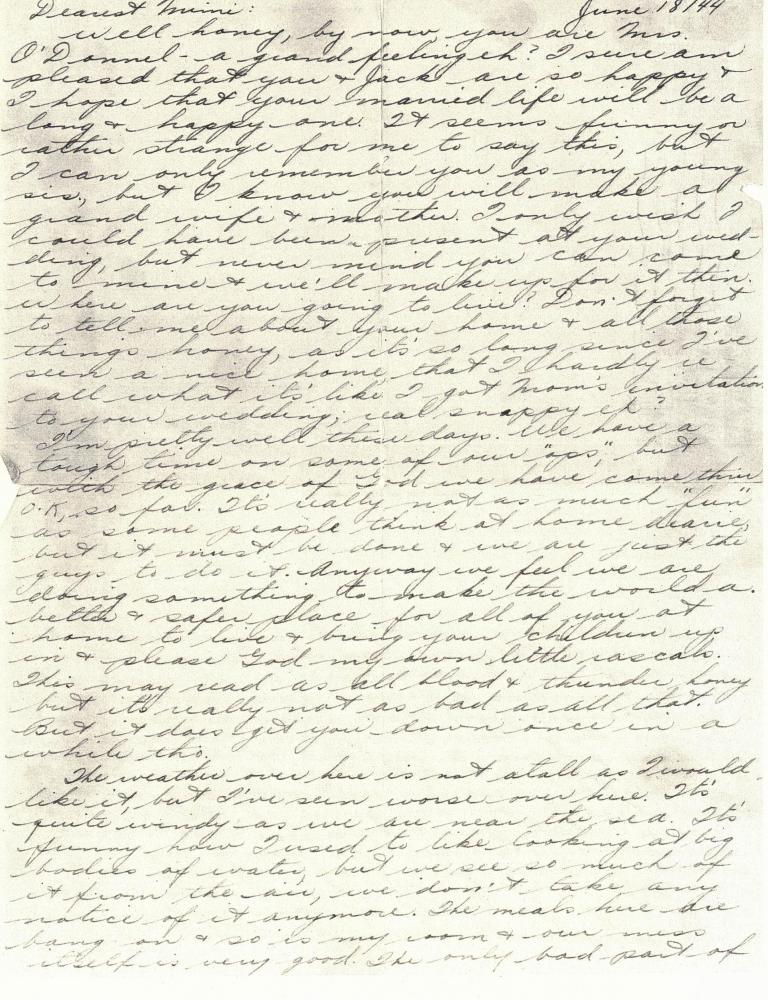 Dearest Mimi: June 18/44
Well honey, by now you are Mrs.
O'Donnel - a grand feeling eh? I sure am
pleased that you & Jack are so happy &
I hope that your married life will be a
long & happy one. It seems funny or
rather strange for me to say this, but
I can only remember you as my young
sis, but I know you will make a
grand wife & mother. I only wish I
could have been present at your wed-
ding, but never mind you can come
to mine & we'll make up for it then.
Where are you going to live? Don't forget
to tell me about your home & all those
things honey, as it's so long since I've
seen a nice home that I hardly re-
call what it's like I got Mom's invitation
to your wedding; real snappy eh?
I'm pretty well these days. We have a
tough time on some of our "ops", but
with the grace of God we have come thru
O.K, so far. It's really not as much "fun"
as some people think at home dearie,
but it must be done & we are just the
guys to do it. Anyway we feel we are
doing something to make the world a
better & safer place for all of you at
home to live & bring your children up
in & please God my own little rascals.
This may read as all blood & thunder honey
but it's really not as bad as all that.
But it does get you down once in a
while tho.
The weather over here is not atall as I would
like it, but I've seen worse over here. It's
quite windy as we are near the sea. It's
funny how I used to like looking at big
bodies of water, but we see so much of
it from the air, we don't take any
notice of it anymore. The meals here are
bang on & so is my room & our mess
itself is very good. The only bad part of